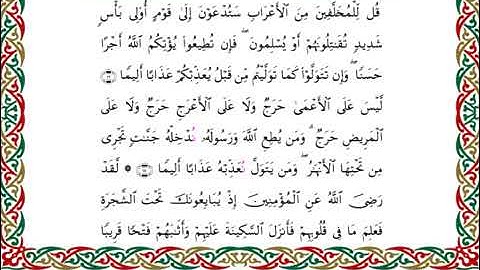 قُل لِّلْمُخَلَّفِينَ مِنَ ٱلْأَعْرَابِ سَتُدْعَوْنَ إِلَىٰ قَوْمٍ أُو۟لِى بَأْسٍ
شَدِيدٍ تُقَـٰتِلُونَهُمْ أَوْ يُسْلِمُونَ ۖ فَإِن تُطِيعُوا۟ يُؤْتِكُمُ ٱللَّهُ أَجْرًا
حَسَنًا ۖ وَإِن تَتَوَلَّوْا۟ كَمَا تَوَلَّيْتُم مِّن قَبْلُ يُعَذِّبْكُمْ عَذَابًا أَلِيمًا
لَّيْسَ عَلَى ٱلْأَعْمَىٰ حَرَجٌ وَلَا عَلَى ٱلْأَعْرَجِ حَرَجٌ وَلَا عَلَى
ٱلْمَرِيضِ حَرَجٌ ۗ وَمَن يُطِعِ ٱللَّهَ وَرَسُولَهُۥ نُدْخِلْهُ جَنَّـٰتٍ تَجْرِى
مِن تَحْتِهَا ٱلْأَنْهَـٰرُ ۖ وَمَن يَتَوَلَّ نُعَذِّبْهُ عَذَابًا أَلِيمًا ۞ لَّقَدْ
رَضِىَ ٱللَّهُ عَنِ ٱلْمُؤْمِنِينَ إِذْ يُبَايِعُونَكَ تَحْتَ ٱلشَّجَرَةِ
فَعَلِمَ مَا فِى قُلُوبِهِمْ فَأَنزَلَ ٱلسَّكِينَةَ عَلَيْهِمْ وَأَثَـٰبَهُمْ فَتْحًا قَرِيبًا